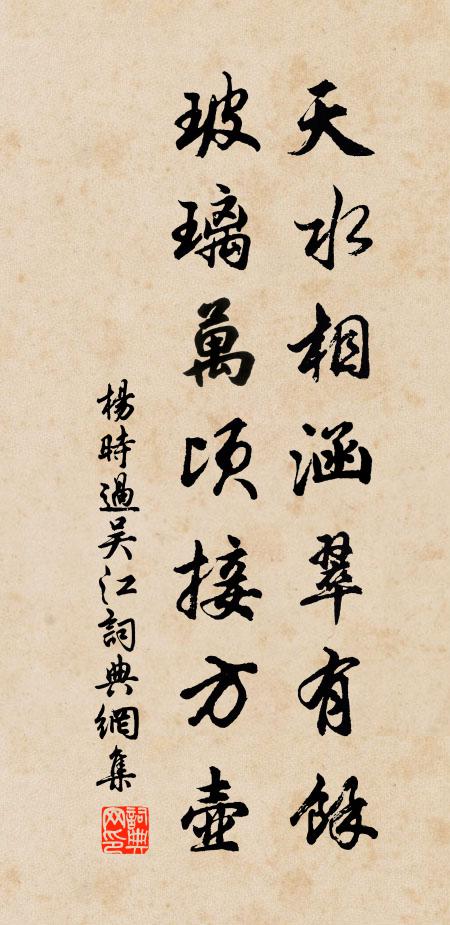 天水相涵翠有餘
玻璃萬頃接方壺
楊時過吴江詞典網集
詞典网印